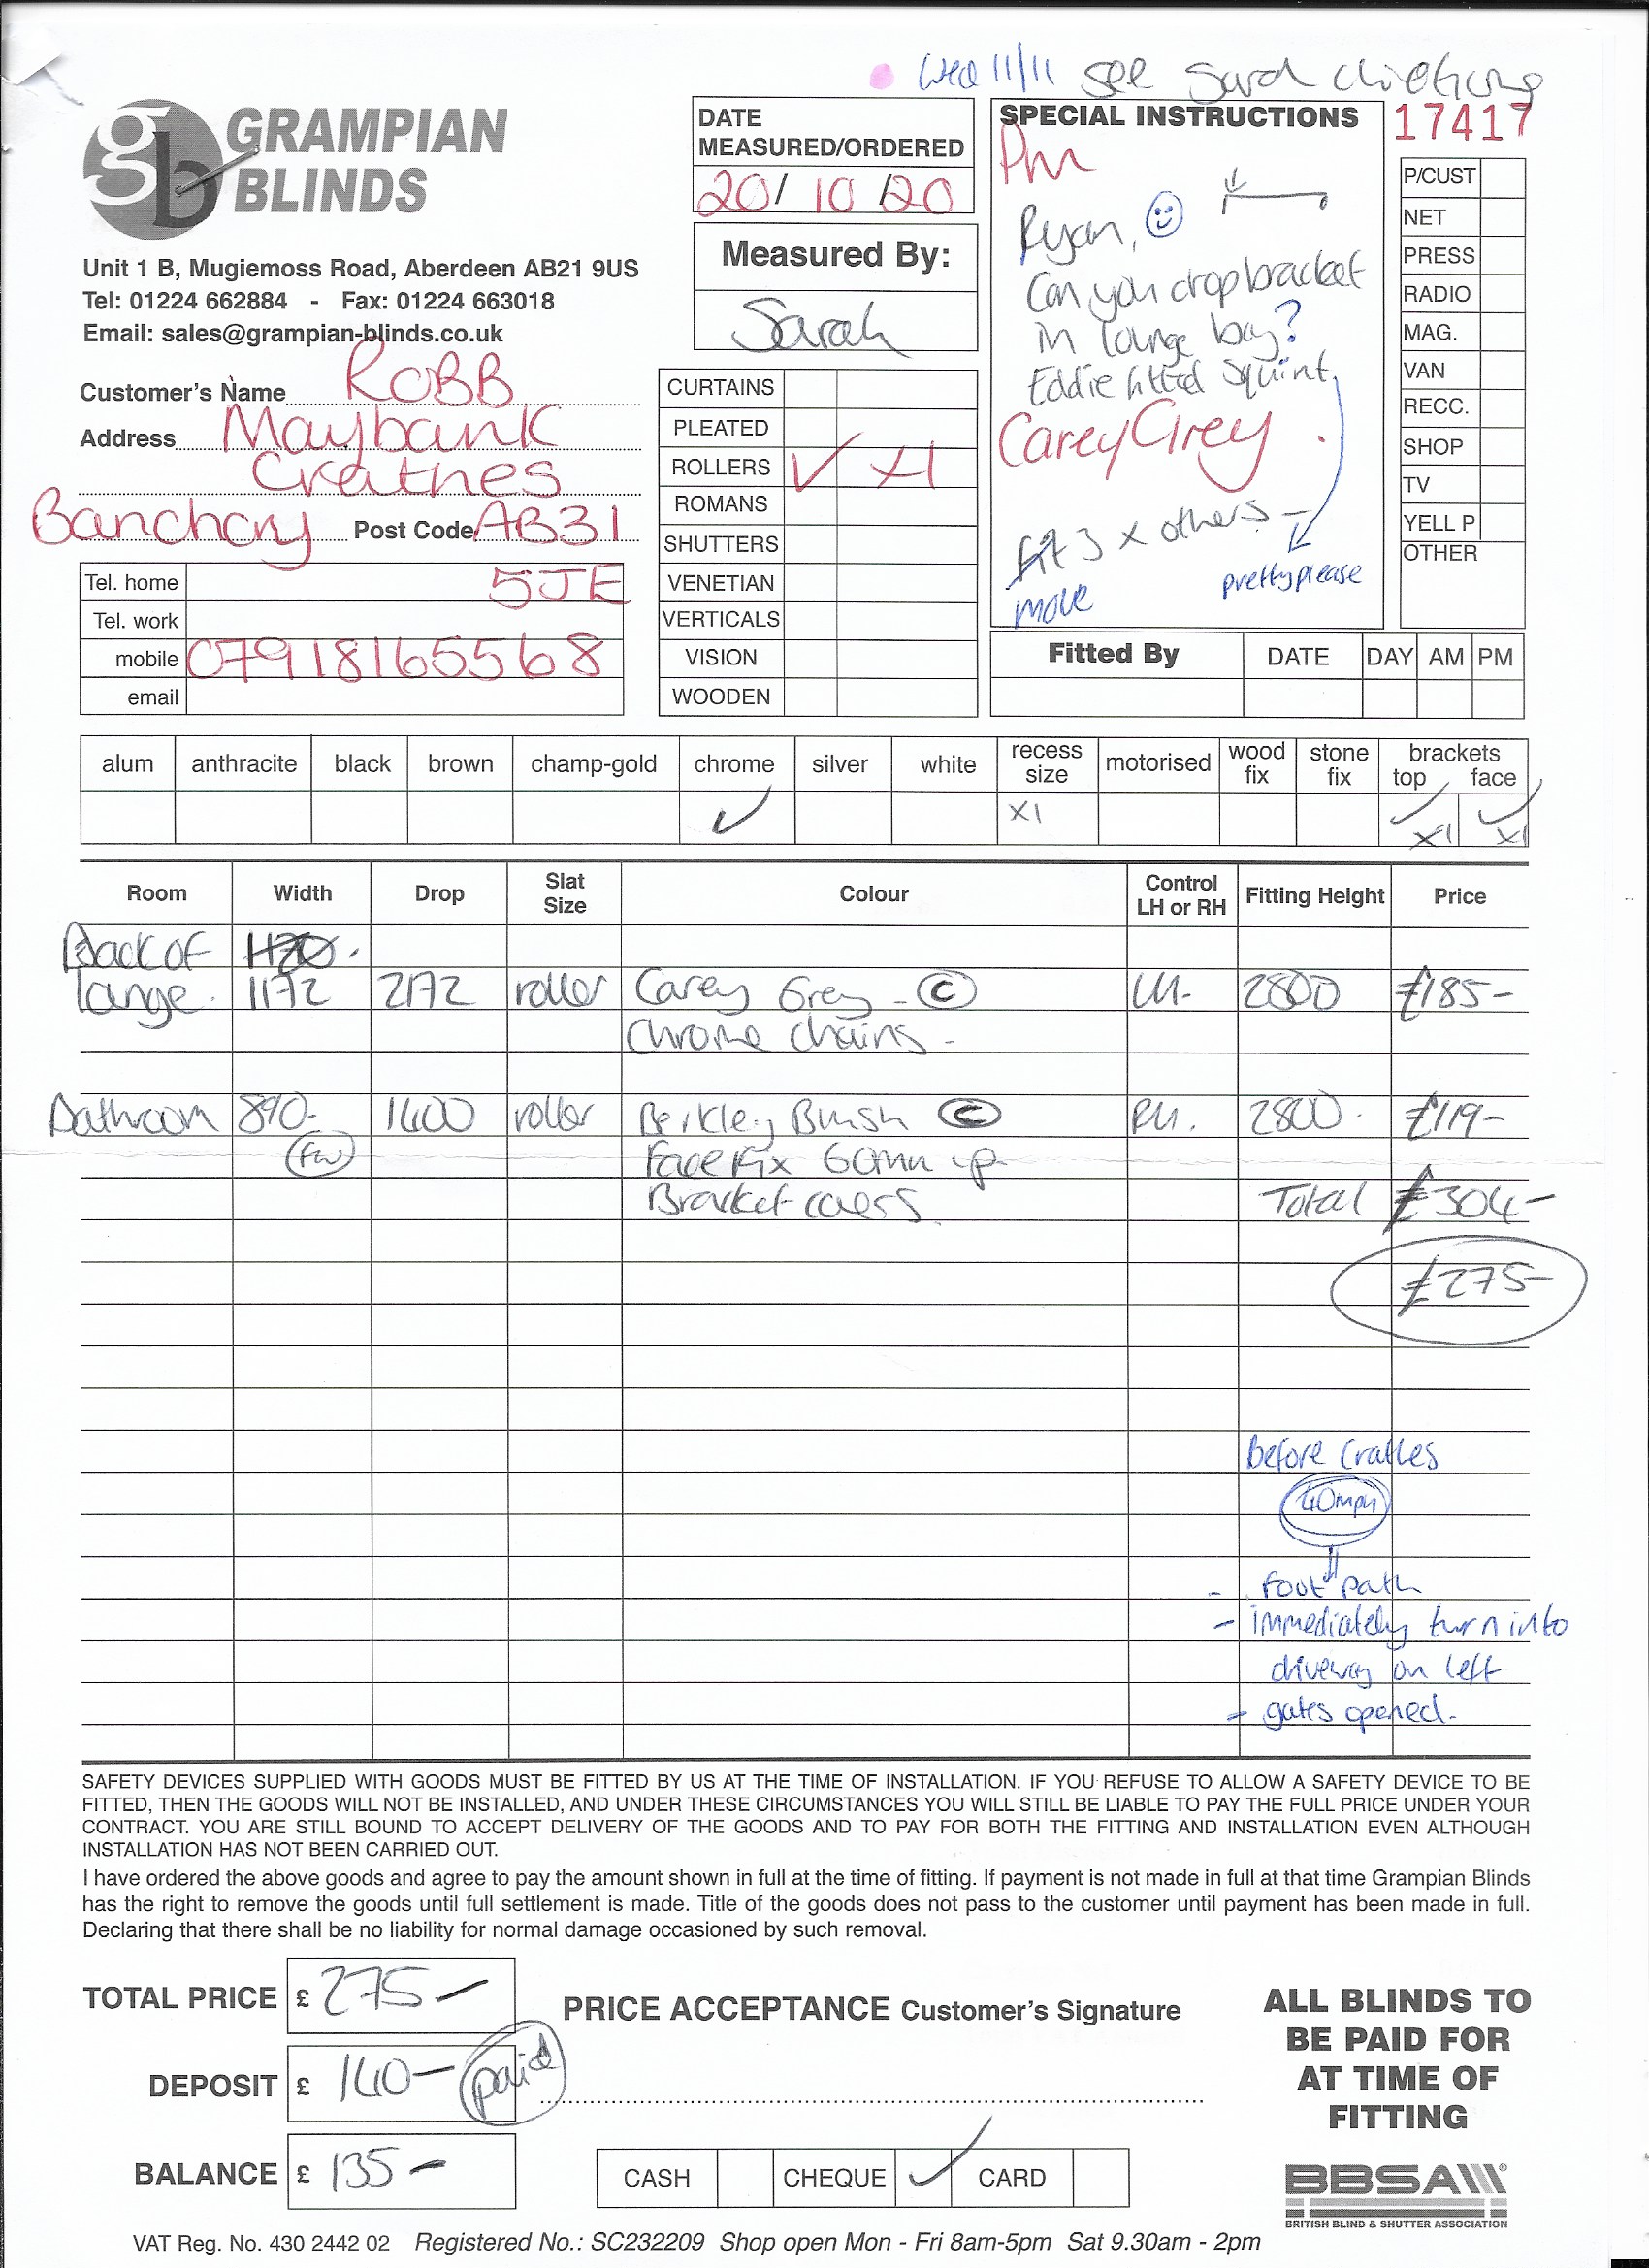 Wed 11/11 See Sarah directions
GRAMPIAN
BLINDS
Unit 1 B, Mugiemoss Road, Aberdeen AB21 9US
Tel: 01224 662884 - Fax: 01224 663018
Email: sales@grampian-blinds.co.uk
Customer's Name ROBB
Address Maybank
Crathes
Banchory Post Code AB31
5JE
Tel. home
Tel. work
mobile 07918165568
email
DATE
MEASURED/ORDERED
20/10/20
Measured By:
Sarah
CURTAINS
PLEATED
ROLLERS ✓ x1
ROMANS
SHUTTERS
VENETIAN
VERTICALS
VISION
WOODEN
SPECIAL INSTRUCTIONS
Pm
Ryan,
Can you drop bracket
in lounge bay?
Eddie fitted squint.
Carey Grey.
3 x others -
move
pretty please
17417
P/CUST
NET
PRESS
RADIO
MAG.
VAN
RECC.
SHOP
TV
YELL P
OTHER
Fitted By DATE DAY AM PM
alum anthracite black brown champ-gold chrome silver white recess size motorised wood fix stone fix brackets top face
✓ x1 ✓ x1 ✓ x1
Room Width Drop Slat Size Colour Control LH or RH Fitting Height Price
Back of 1170.
lounge. 1172 2172 roller Carey Grey - © LH. 2800 £185-
Chrome chains -
Bathroom 890- 1400 roller Berkley Blush © RH. 2800. £119-
FW Face Fix 60mm up
Bracket covers Total £304-
£275-
Before Crathes
40mph
- Foot path
- immediately turn into
driveway on left
- gates opened.
SAFETY DEVICES SUPPLIED WITH GOODS MUST BE FITTED BY US AT THE TIME OF INSTALLATION. IF YOU REFUSE TO ALLOW A SAFETY DEVICE TO BE
FITTED, THEN THE GOODS WILL NOT BE INSTALLED, AND UNDER THESE CIRCUMSTANCES YOU WILL STILL BE LIABLE TO PAY THE FULL PRICE UNDER YOUR
CONTRACT. YOU ARE STILL BOUND TO ACCEPT DELIVERY OF THE GOODS AND TO PAY FOR BOTH THE FITTING AND INSTALLATION EVEN ALTHOUGH
INSTALLATION HAS NOT BEEN CARRIED OUT.
I have ordered the above goods and agree to pay the amount shown in full at the time of fitting. If payment is not made in full at that time Grampian Blinds
has the right to remove the goods until full settlement is made. Title of the goods does not pass to the customer until payment has been made in full.
Declaring that there shall be no liability for normal damage occasioned by such removal.
TOTAL PRICE £ 275-
DEPOSIT £ 140- paid
BALANCE £ 135-
PRICE ACCEPTANCE Customer's Signature
CASH CHEQUE ✓ CARD
ALL BLINDS TO
BE PAID FOR
AT TIME OF
FITTING
BBSA
BRITISH BLIND & SHUTTER ASSOCIATION
VAT Reg. No. 430 2442 02 Registered No.: SC232209 Shop open Mon - Fri 8am-5pm Sat 9.30am - 2pm